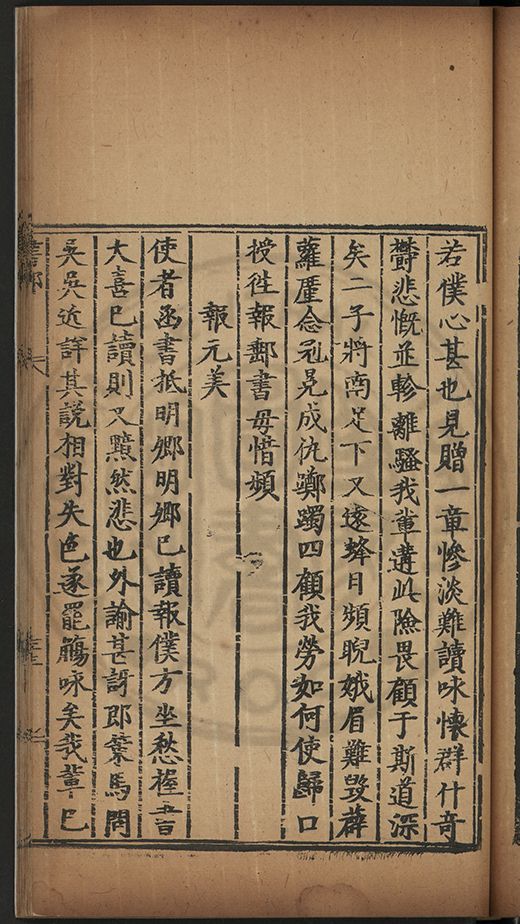 若僕心甚也見贈一章慘淡難讀咏懷群什奇
鬱悲慨並軫離騷我輩遘此險畏顧于斯道深
矣二子將南足下又遠蜂目頻睨娥眉難毀薜
蘿廑念虬晃成仇躑躅四顧我勞如何使歸口
授徃報郵書毋惜頻
報元美
使者函書抵明卿明卿已讀報僕方坐愁握
大喜已讀則又黯然悲也外諭甚訝即策馬問
吳吳近詳其說相對失色遂罷觴咏矣我輩已